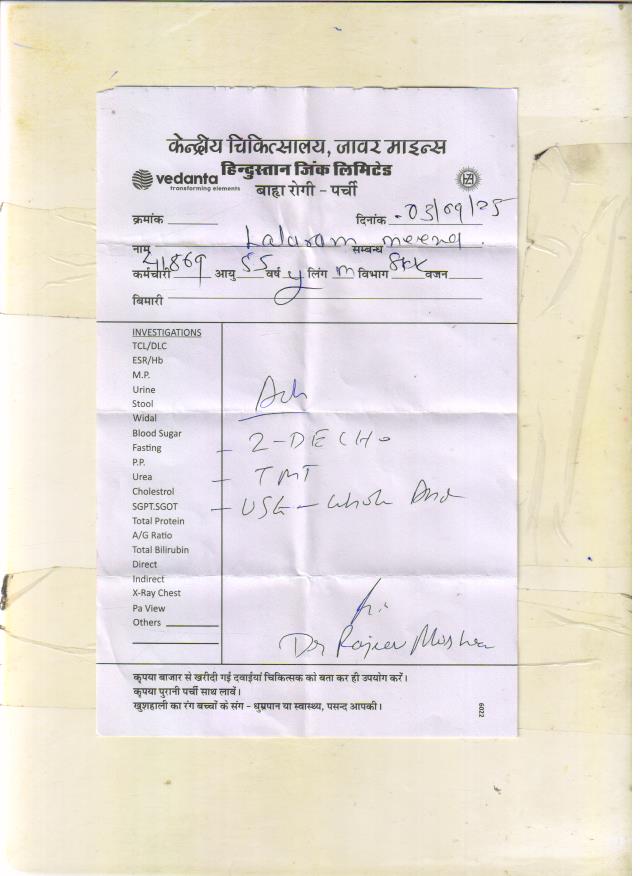 केन्द्रीय चिकित्सालय, जावर माइन्स
हिन्दुस्तान जिंक लिमिटेड
vedanta
transforming elements
बाह्य रोगी - पर्ची
क्रमांक
दिनांक 03/09/25
नाम Lalaram सम्बन्ध meena
कर्मचारी 41869 आयु 55 वर्ष y लिंग m विभाग वजन
बिमारी
INVESTIGATIONS
TCL/DLC
ESR/Hb
M.P.
Urine
Stool
Adv
Widal
Blood Sugar
- 2-DECHO
Fasting
P.P.
Urea
- TMT
Cholestrol
SGPT.SGOT
- USG - Whole Abd
Total Protein
A/G Ratio
Total Bilirubin
Direct
Indirect
X-Ray Chest
Pa View
Others
Dr Rajeev Mishra
कृपया बाजार से खरीदी गई दवाईयां चिकित्सक को बता कर ही उपयोग करें।
कृपया पुरानी पर्ची साथ लावें।
खुशहाली का रंग बच्चों के संग - धुम्रपान या स्वास्थ्य, पसन्द आपकी।
6022